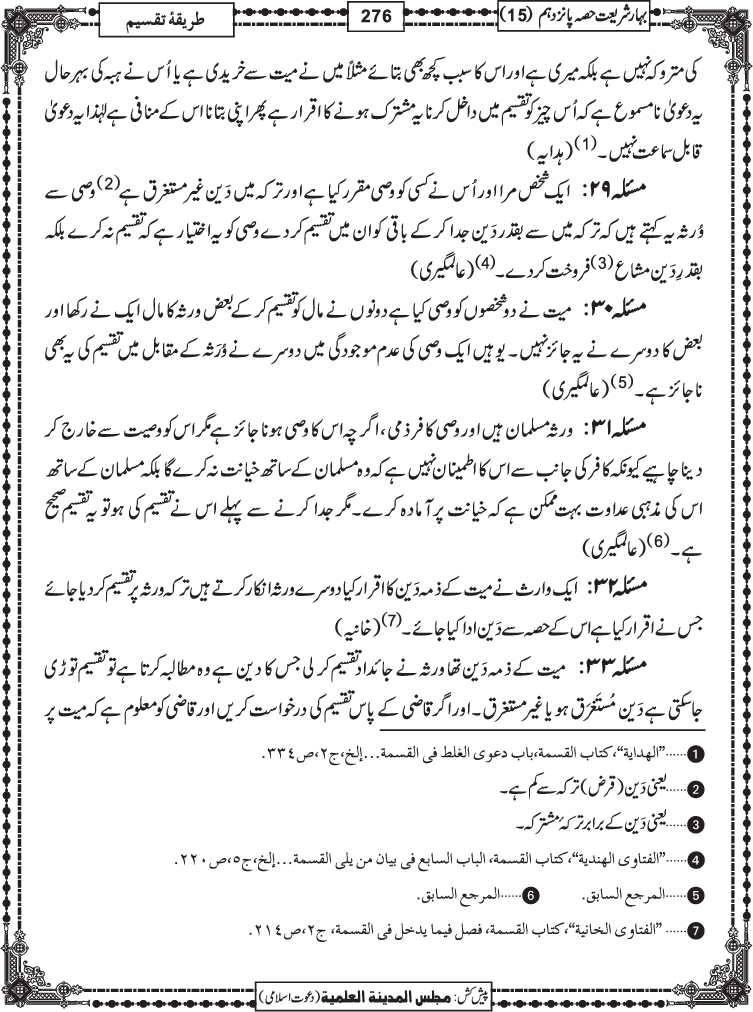 بہارِ شریعت حصہ پانزدہم (15)
276
طریقۂ تقسیم
کی متروکہ نہیں ہے بلکہ میری ہے اور اس کا سبب کچھ بھی بتائے مثلاً میں نے میت سے خریدی ہے یا اُس نے ہبہ کی بہر حال
یہ دعویٰ نا مسموع ہے کہ اُس چیز کو تقسیم میں داخل کرنا یہ مشترک ہونے کا اقرار ہے پھر اپنی بتانا اس کے منافی ہے لہٰذا یہ دعویٰ
قابل سماعت نہیں۔(1) (ہدایہ)
مسئلہ ۲۹: ایک شخص مرا اور اُس نے کسی کو وصی مقرر کیا ہے اور ترکہ میں دَین غیر مستغرق ہے(2) وصی سے
وُرثہ یہ کہتے ہیں کہ ترکہ میں سے بقدر دَین جدا کر کے باقی کو ان میں تقسیم کر دے وصی کو یہ اختیار ہے کہ تقسیم نہ کرے بلکہ
بقدرِ دَین مشاع(3) فروخت کردے۔(4) (عالمگیری)
مسئلہ ۳۰: میت نے دو شخصوں کو وصی کیا ہے دونوں نے مال کو تقسیم کر کے بعض ورثہ کا مال ایک نے رکھا اور
بعض کا دوسرے نے یہ جائز نہیں۔ یو ہیں ایک وصی کی عدم موجودگی میں دوسرے نے وُرَثہ کے مقابل میں تقسیم کی یہ بھی
نا جائز ہے۔(5) (عالمگیری)
مسئلہ ۳۱: ورثہ مسلمان ہیں اور وصی کا فر ذمی، اگر چہ اس کا وصی ہونا جائز ہے مگر اس کو وصیت سے خارج کر
دینا چاہیے کیونکہ کافر کی جانب سے اس کا اطمینان نہیں ہے کہ وہ مسلمان کے ساتھ خیانت نہ کرے گا بلکہ مسلمان کے ساتھ
اس کی مذہبی عداوت بہت ممکن ہے کہ خیانت پر آمادہ کرے۔ مگر جدا کرنے سے پہلے اس نے تقسیم کی ہو تو یہ تقسیم صحیح
ہے۔(6) (عالمگیری)
مسئلہ ۳۲: ایک وارث نے میت کے ذمہ دَین کا اقرار کیا دوسرے ورثہ انکار کرتے ہیں ترکہ ورثہ پر تقسیم کر دیا جائے
جس نے اقرار کیا ہے اس کے حصہ سے دَین ادا کیا جائے۔(7) (خانیہ)
مسئلہ ۳۳: میت کے ذمہ دَین تھا ورثہ نے جائداد تقسیم کر لی جس کا دین ہے وہ مطالبہ کرتا ہے تو تقسیم توڑی
جاسکتی ہے دَین مُستَغرَق ہو یا غیر مستغرق۔ اور اگر قاضی کے پاس تقسیم کی درخواست کریں اور قاضی کو معلوم ہے کہ میت پر
1......"الهداية"، كتاب القسمة، باب دعوى الغلط فى القسمة...إلخ، ج٢، ص٣٣٤.
2......یعنی دَین (قرض) ترکہ سے کم ہے۔
3......یعنی دَین کے برابر ترکۂ مشترکہ۔
4......"الفتاوى الهندية"، كتاب القسمة، الباب السابع فى بيان من يلى القسمة...إلخ، ج٥، ص٢٢٠.
5......المرجع السابق. 6......المرجع السابق.
7......"الفتاوى الخانية"، كتاب القسمة، فصل فيما يدخل فى القسمة، ج٢، ص٢١٤.
پیش کش: مجلس المدینة العلمیة (دعوتِ اسلامی)